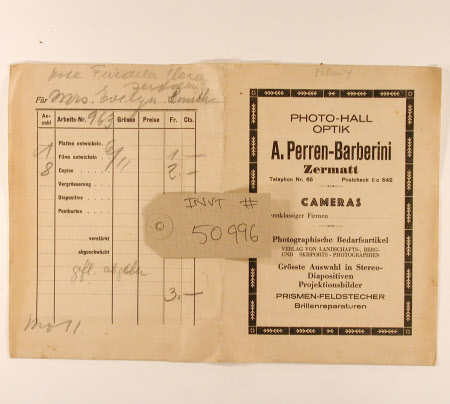 Für Mrs. Evelyn
An-zahl Arbeits-Nr. 963 Grösse Preise Fr. Cts.
Platten entwickeln
1 Filme entwickeln 6/11 1.—
8 Copien 2.—
Vergrösserung
Diapositive
Postkarten
verstärkt
abgeschwächt
3.—
Film 4
PHOTO-HALL
OPTIK
A. Perren-Barberini
Zermatt
Telephon Nr. 65 Postcheck II c 542
CAMERAS
erstklassiger Firmen
Photographische Bedarfsartikel
VERLAG VON LANDSCHAFTS-, BERG-
UND SKISPORTS-PHOTOGRAPHIEN
Grösste Auswahl in Stereo-
Diapositiven
Projektionsbilder
PRISMEN-FELDSTECHER
Brillenreparaturen
INVT #
50996